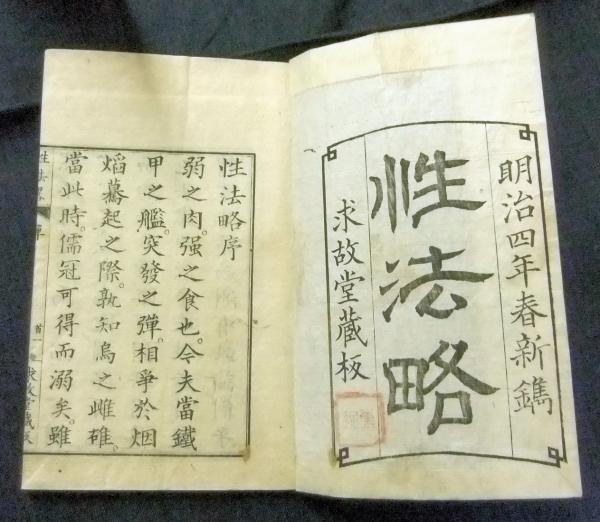 明治四年春新鐫
性法略
求故堂蔵板
性法略序
弱之肉。强之食也。今夫當鐵
甲之艦。突發之彈。相爭於烟
焰驀起之際。孰知烏之雌雄。
當此時。儒冠可得而溺矣。雖
性法畧 序 首一 求故堂蔵板